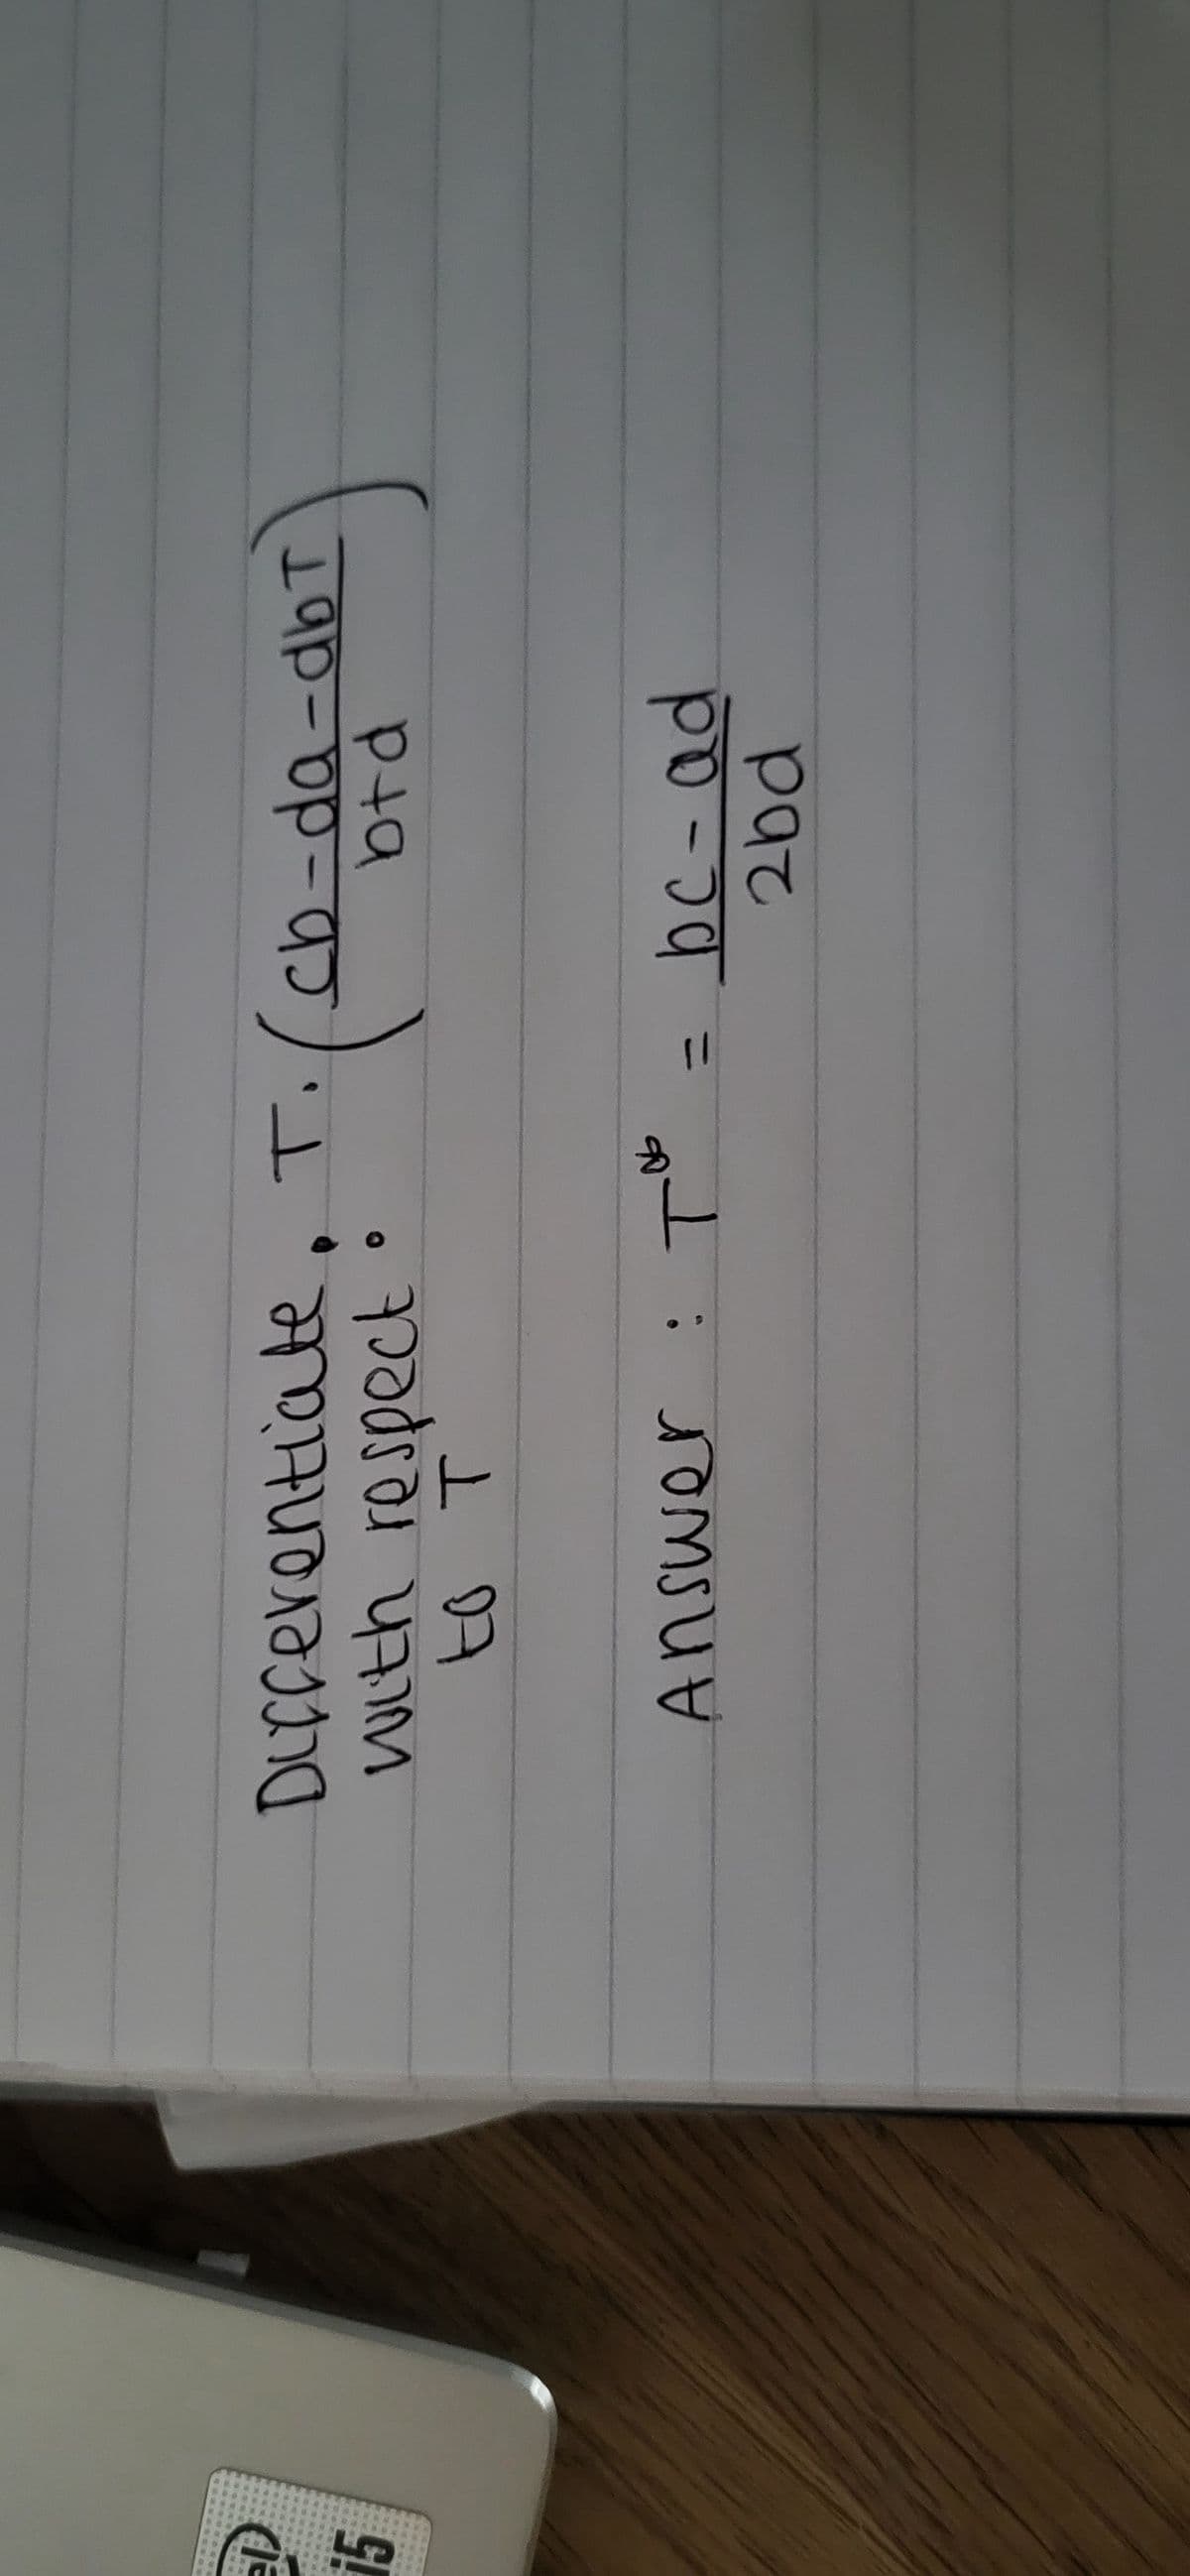 Differentiate : T. (cb-da-dbT / b+d)
with respect :
to T
Answer : T* = bc-ad / 2bd
i5